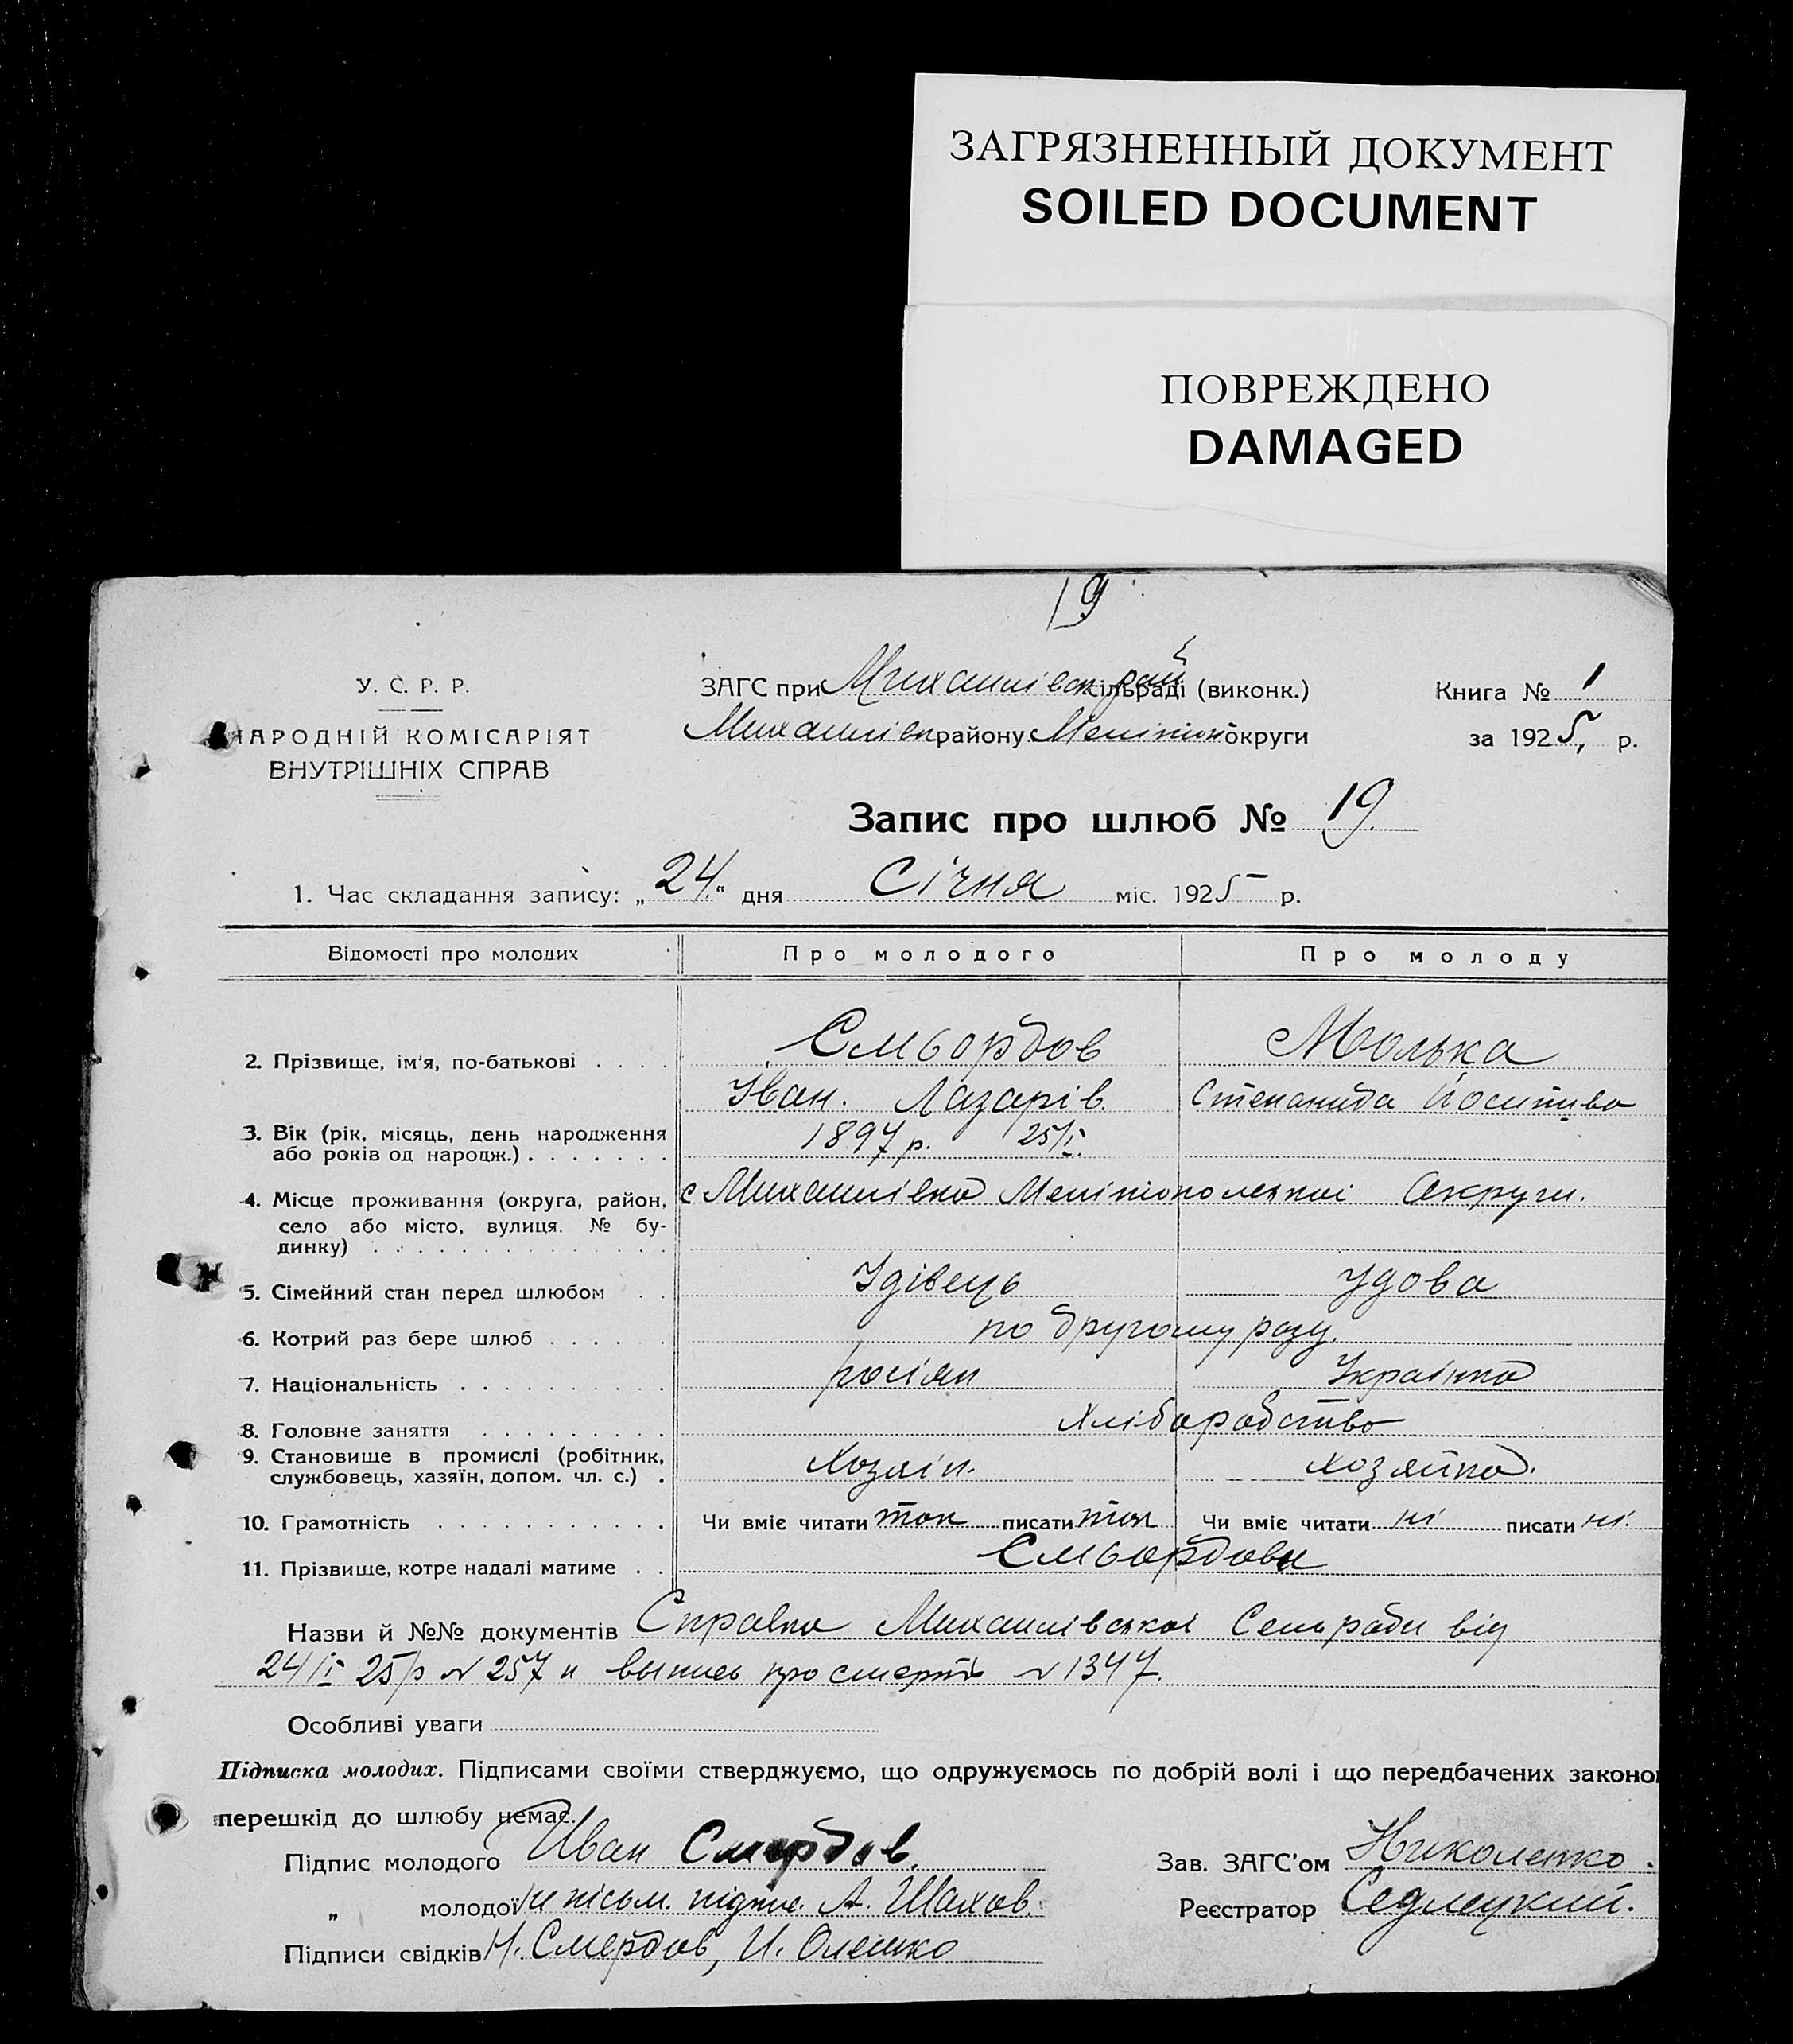 ЗАГРЯЗНЕННЫЙ ДОКУМЕНТ
SOILED DOCUMENT
ПОВРЕЖДЕНО
DAMAGED
19
У. С. Р. Р.
НАРОДНІЙ КОМІСАРІЯТ
ВНУТРІШНІХ СПРАВ
ЗАГС при Михайлівск. рай сільраді (виконк.)
Михайлівск району Мелітоп округи
Книга № 1
за 1925, р.
Запис про шлюб № 19.
1. Час складання запису: „24.“ дня Січня міс. 1925 р.
Відомості про молодих Про молодого Про молоду
2. Прізвище, ім'я, по-батькові . . . . Смьордов Молька
Іван. Лазарів. Степанида Йосипівна
3. Вік (рік, місяць, день народження
або років од народж.) . . . . . . . 1897 р. 25/I.
4. Місце проживання (округа, район, с Михайлівка Мелітопольскої Округи.
село або місто, вулиця. № бу-
динку) . . . . . . . . . . . . . .
5. Сімейний стан перед шлюбом . . Удівець Удова
6. Котрий раз бере шлюб . . . . . по другому разу.
7. Національність . . . . . . . . . . росіян Українка
8. Головне заняття . . . . . . . . . Хліборобство
9. Становище в промислі (робітник,
службовець, хазяїн, допом. чл. с.) . Хозяін. Хозяйка.
10. Грамотність . . . . . . . . . . . Чи вміє читати так писати так Чи вміє читати ні писати ні.
11. Прізвище, котре надалі матиме . . Смьордови
Назви й №№ документів Справка Михайлівскої Сельради від
24/I 25/р № 257 и выпись про смерть № 1347.
Особливі уваги
Підписка молодих. Підписами своїми стверджуємо, що одружуємось по добрій волі і що передбачених законо
перешкід до шлюбу немає.
Підпис молодого Иван Смердов.
„ молодої н пісьм. підпис. А. Шахов.
Підписи свідків Н. Смердов, И. Олешко
Зав. ЗАГС'ом Николенко.
Реєстратор Седлецкий.